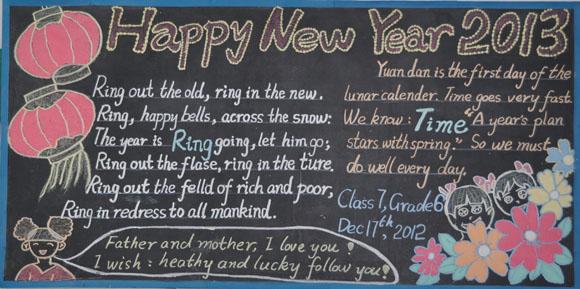 Happy New Year 2013
Ring out the old, ring in the new.
Ring, happy bells, across the snow:
The year is Ring going, let him go;
Ring out the flase, ring in the ture.
Ring out the felld of rich and poor,
Ring in redress to all mankind.
Yuan dan is the first day of the
lunar calender. Time goes very fast.
We know: Time "A year's plan
stars with spring." So we must
do well every day.
Class 7, Grade 6
Dec 17th, 2012
Father and mother, I love you!
I wish: heathy and lucky follow you!